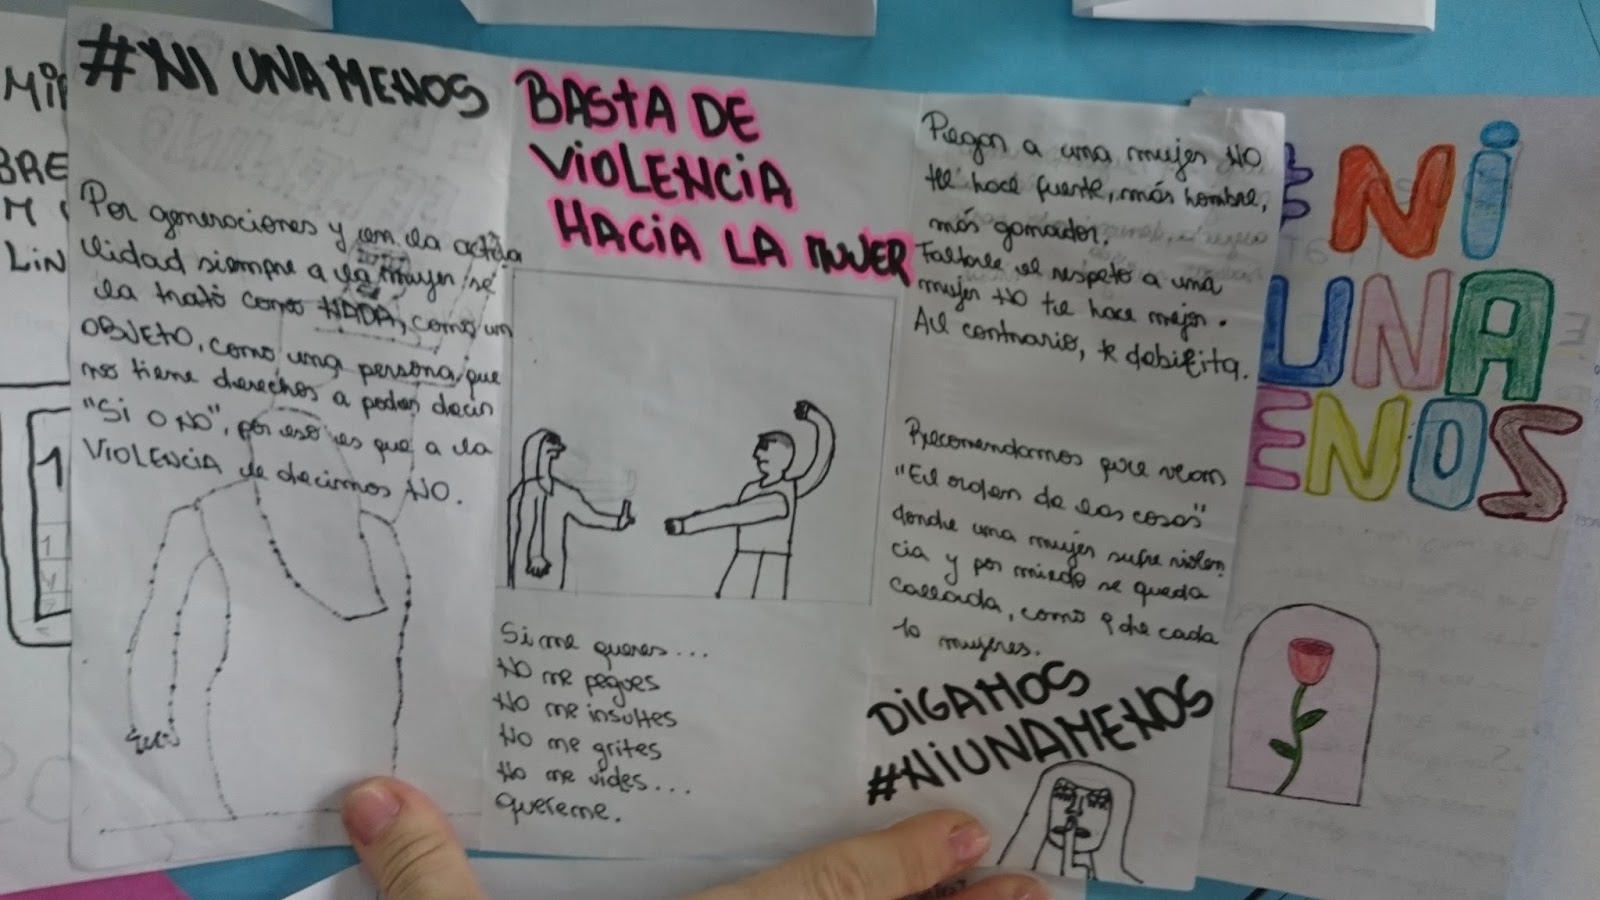 #NI UNA MENOS
Por generaciones y con la actua
lidad siempre a la mujer se
la trató como NADA, como un
OBJETO, como una persona que
no tiene derechos a poder decir
"SI O NO", por eso es que a la
VIOLENCIA le decimos NO.
BASTA DE
VIOLENCIA
HACIA LA MUJER
Si me queres...
NO me pegues
NO me insultes
NO me grites
No me vides...
quereme.
Pegar a una mujer NO
te hace fuerte, más hombre,
más ganador.
Faltarle el respeto a una
mujer NO te hace mejor.
Al contrario, te debilita.
Recomendamos que vean
"El orden de las cosas"
donde una mujer sufre violen
cia y por miedo se queda
callada, como 9 de cada
10 mujeres.
DIGAMOS
#NIUNAMENOS
NI
UNA
ENOS
BRE
LIN
1